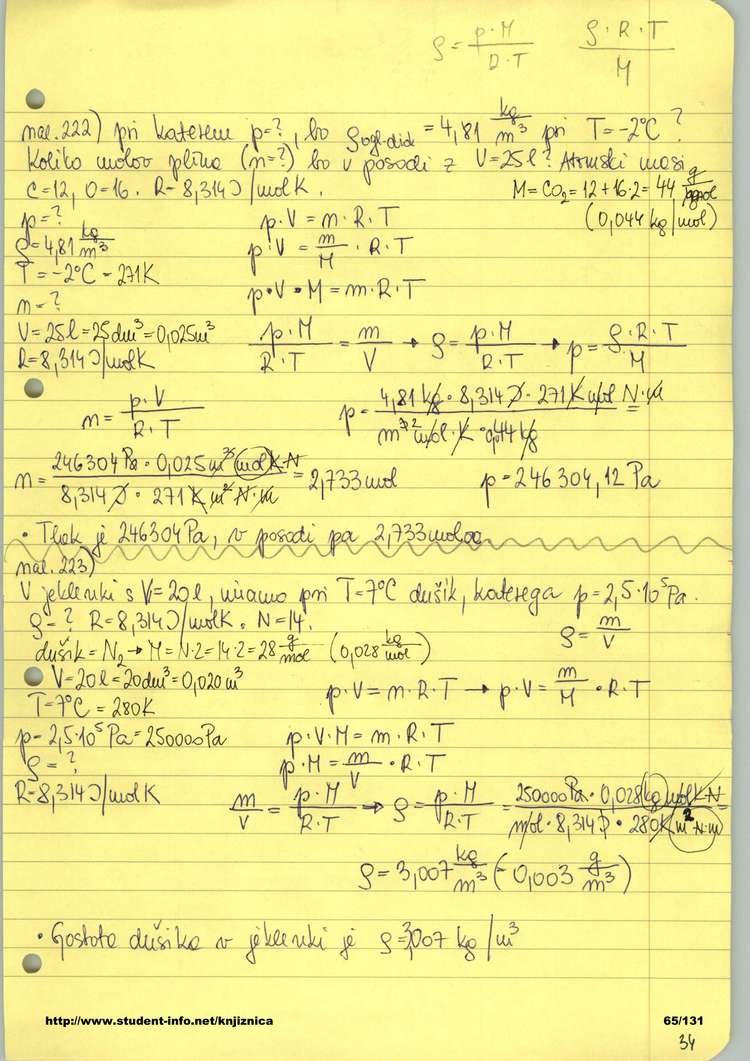 ρ = p·M / R·T    ρ·R·T / M
nal. 222) pri katerem p=?, bo ρogl-diok = 4,81 kg/m³ pri T=-2°C?
Koliko molov plina (n=?) bo v posodi z V=25l? Atomski masi
C=12, O=16. R=8,314J/molK.
M=CO₂=12+16·2=44 g/mol
(0,044 kg/mol)
p=?
ρ=4,81 kg/m³
T=-2°C=271K
n=?
V=25l=25dm³=0,025m³
R=8,314J/molK
p·V=n·R·T
p·V = m/M · R·T
p·V·M=m·R·T
p·M / R·T = m/V → ρ = p·M / R·T → p = ρ·R·T / M
n = p·V / R·T
p = 4,81 kg · 8,314 J · 271 K mol N·m / m³² mol·K·0,044 kg
n = 246304 Pa · 0,025 m³ mol K N / 8,314 J · 271 K m² N·m = 2,733 mol
p = 246 304,12 Pa
• Tlak je 246304 Pa, v posodi pa 2,733 molov
nal. 223)
V jeklenki s V=20l, imamo pri T=7°C dušik, katerega p=2,5·10⁵Pa.
ρ=? R=8,314J/molK. N=14.
ρ = m/V
dušik=N₂→M=N·2=14·2=28 g/mol (0,028 kg/mol)
V=20l=20dm³=0,020m³
T=7°C=280K
p=2,5·10⁵Pa=250000Pa
ρ=?
R=8,314J/molK
p·V=n·R·T → p·V = m/M · R·T
p·V·M=m·R·T
p·M = m/V · R·T
m/V = p·M / R·T → ρ = p·M / R·T = 250000Pa · 0,028 kg mol K N / mol · 8,314 J · 280K m² N·m =
ρ = 3,007 kg/m³ (=0,003 g/m³)
• Gostota dušika v jeklenki je ρ=3,007 kg/m³
http://www.student-info.net/knjiznica
65/131
34